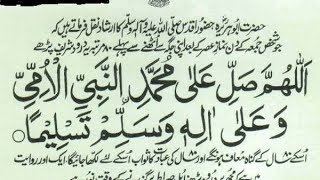 حضرت ابوہریرہؓ حضور اقدس صلی اللہ علیہ وآلہ وسلم کا ارشاد نقل فرماتے ہیں کہ
جو شخص جمعہ کے دن نماز عصر کے بعد اپنی جگہ سے اٹھنے سے پہلے ۸۰ مرتبہ یہ درود شریف پڑھے
اَللّٰهُمَّ صَلِّ عَلٰى مُحَمَّدِ النَّبِيِّ الْاُمِّيِّ
وَعَلٰى اٰلِهٖ وَسَلِّمْ تَسْلِيْمًا
اسکے ۸۰ سال کے گناہ معاف ہونگے اور ۸۰ سال کی عبادت کا ثواب اسکے لئے لکھا جائیگا۔ ایک اور روایت